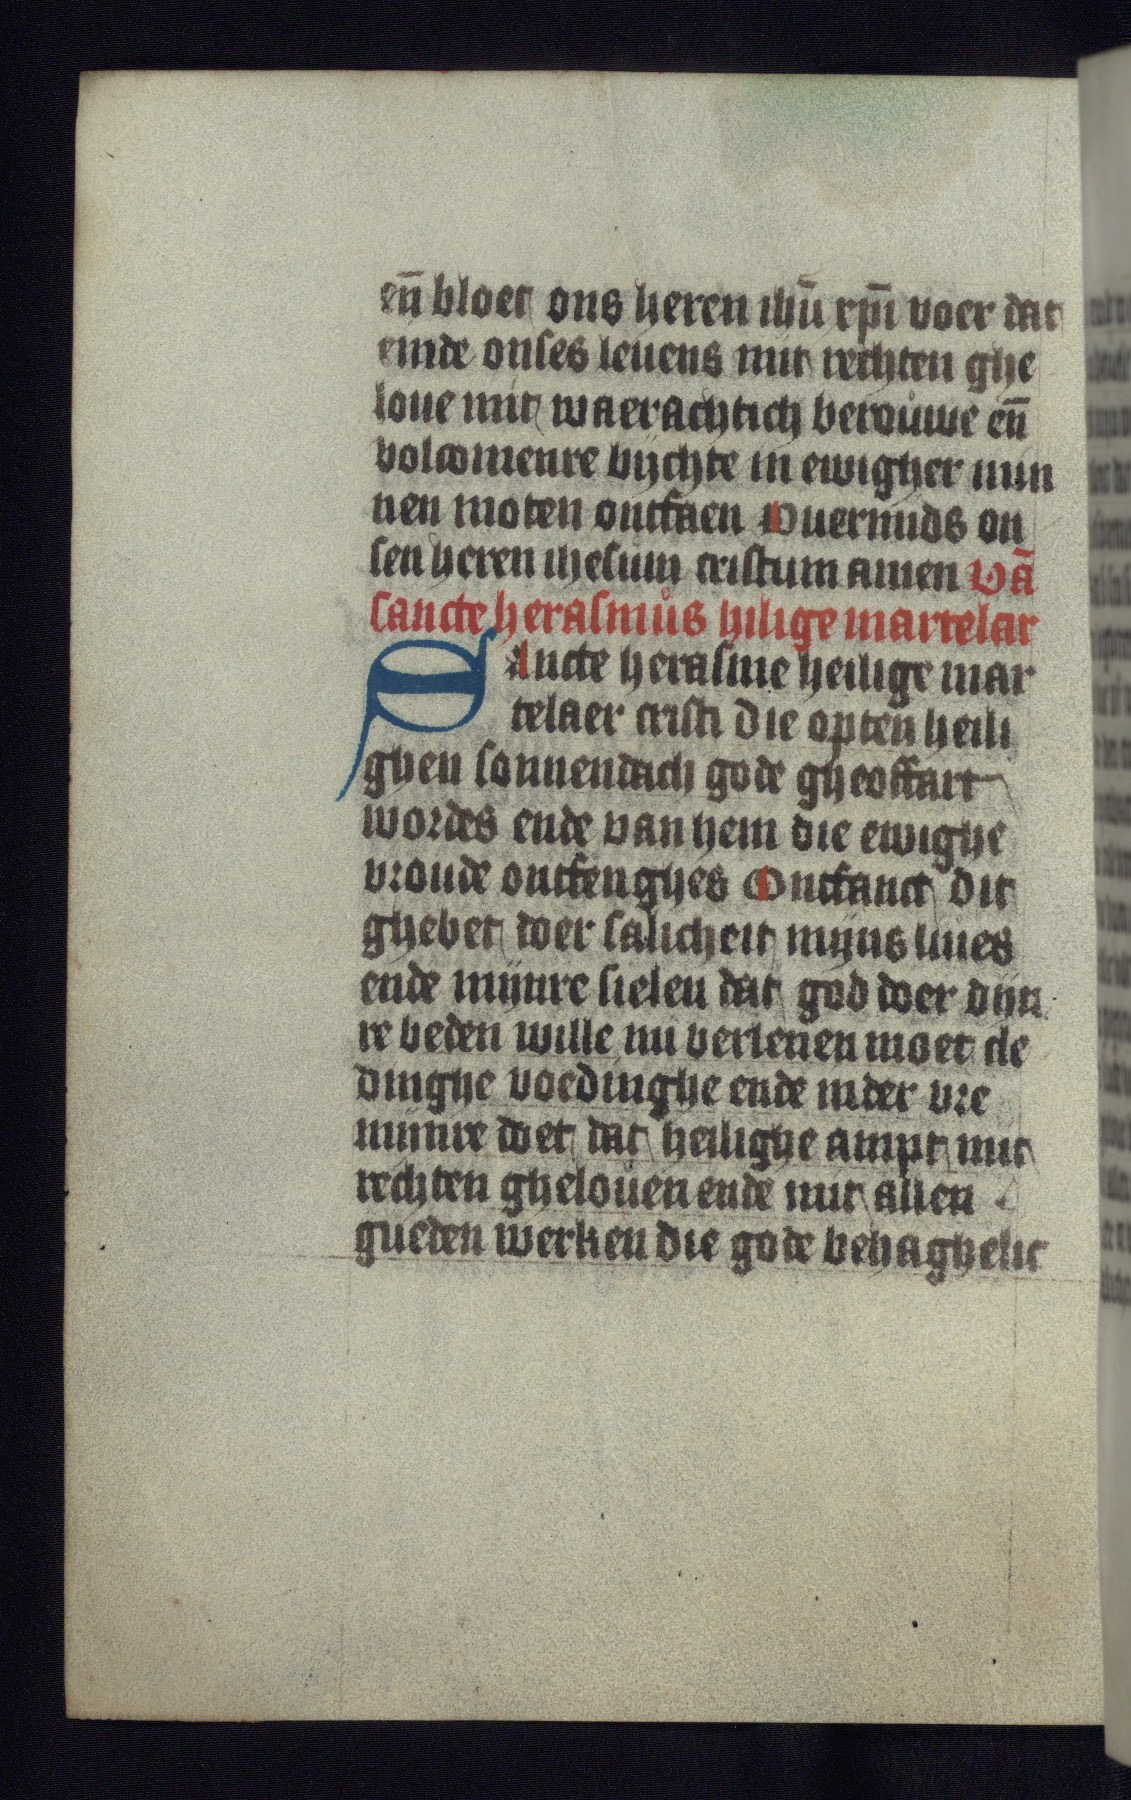 en̄ bloet ons heren ihū xp̄i voer dat
einde onses leuens mit rechten ghe
loue mit waerachtich berouwe en̄
volcomenre bijchte in ewigher min
nen moten ontfaen Ouermids on
sen heren ihesum cristum amen Vā
sancte herasmus hilige martelar
Sancte herasme heilige mar
telaer cristi die opten heili
ghen sonnendach gode gheoffart
wordes ende van hem die ewighe
vroude ontfenghes Ontfanct dit
ghebet doer salicheit mijns liues
ende mijnre sielen dat god doer dijn
re beden wille mi verlenen moet cle
dinghe voedinghe ende inder vre
mijnre doet dat heilighe ampt mit
rechten ghelouen ende mit allen
gueden werken die gode behaghelic